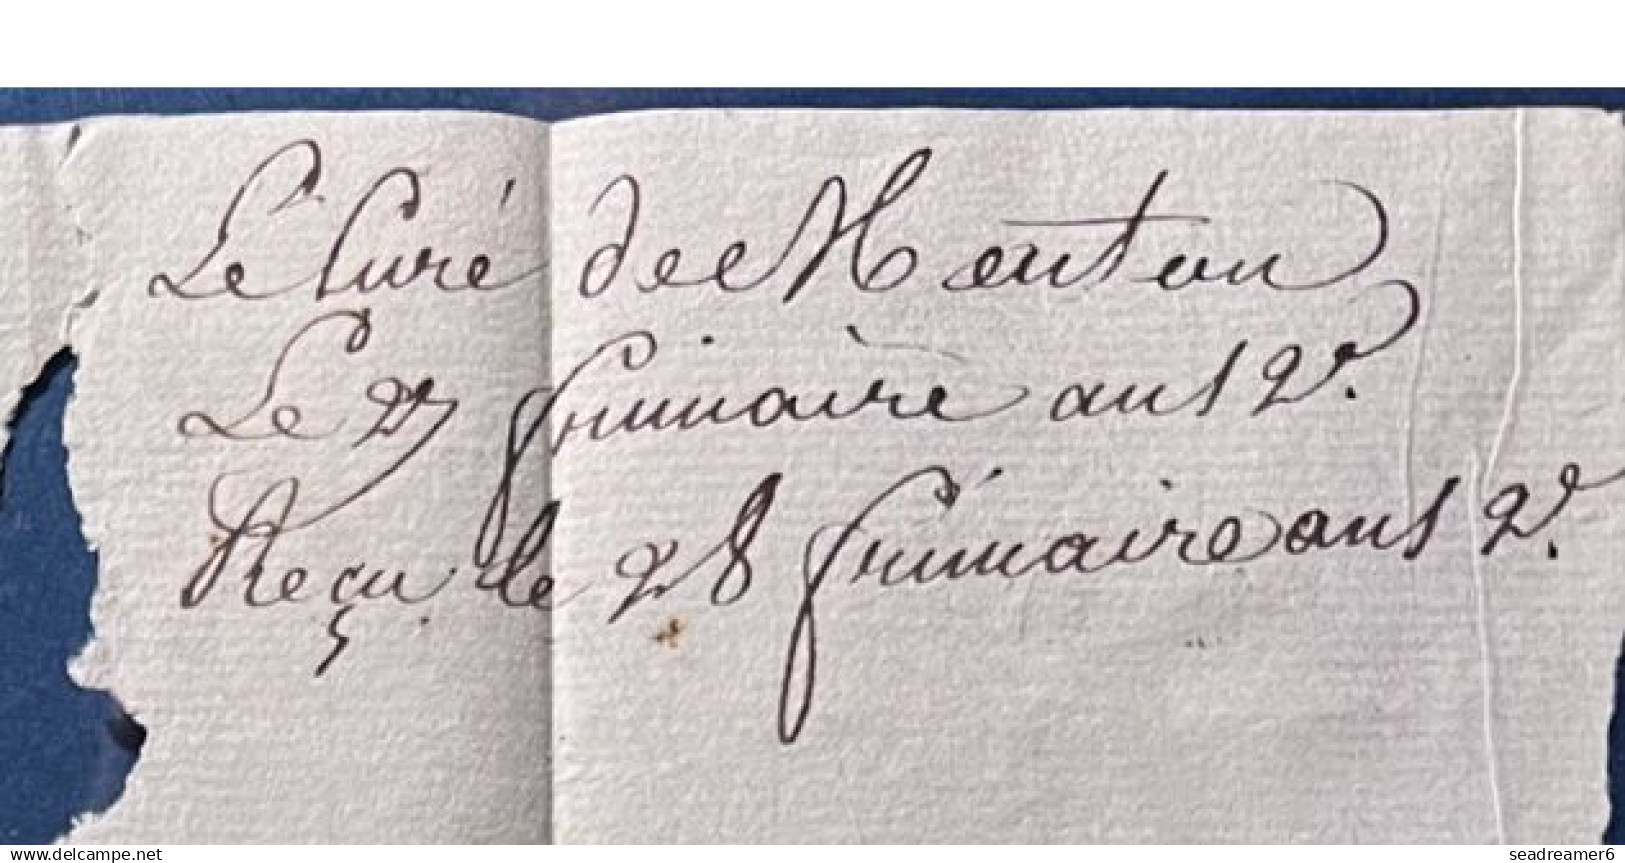 Le Curé de Menton
Le 27 frimaire ans 2e.
Reçu le 28 frimaire ans 2e.
www.delcampe.net
seadreamer6